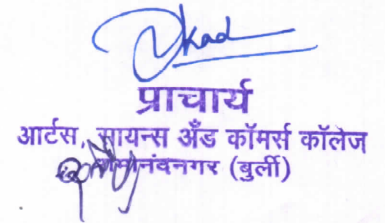 प्राचार्य
आर्टस, सायन्स अँड कॉमर्स कॉलेज
(बुर्ली)